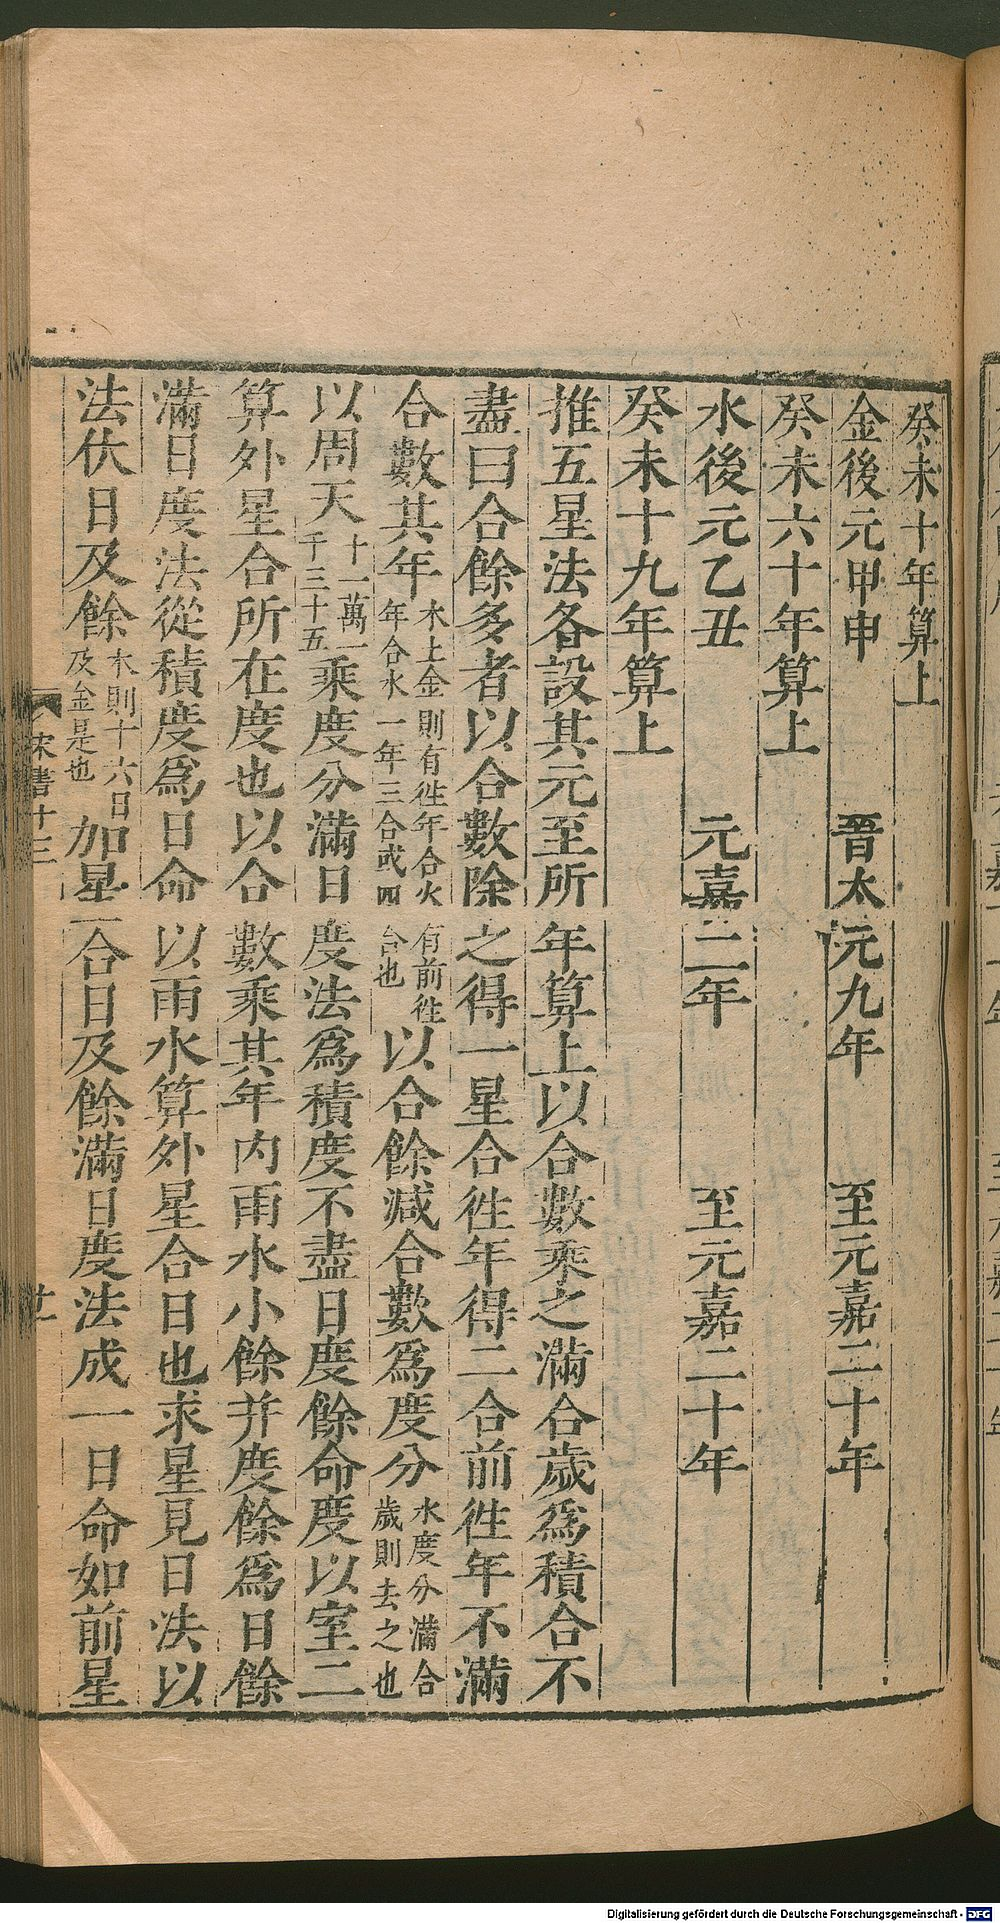 癸未十年算上
金後元甲申 晉太元九年 至元嘉二十年
癸未六十年算上
水後元乙丑 元嘉二年 至元嘉二十年
癸未十九年算上
推五星法各設其元至所年算上以合數乘之滿合歲爲積合不
盡曰合餘多者以合數除之得一星合徃年得二合前徃年不滿
合數其年
木土金則有徃年合火有前徃
年合水一年三合或四合也
以合餘減合數爲度分
水度分滿合
歲則去之也
以周天
十一萬一
千三十五
乘度分滿日度法爲積度不盡日度餘命度以室二
算外星合所在度也以合數乘其年內雨水小餘并度餘爲日餘
滿日度法從積度爲日命以雨水算外星合日也求星見日法以
法伏日及餘
木則十六日
及金是也
加星合日及餘滿日度法成一日命如前星
宋書十三
廿一
Digitalisierung gefördert durch die Deutsche Forschungsgemeinschaft - DFG